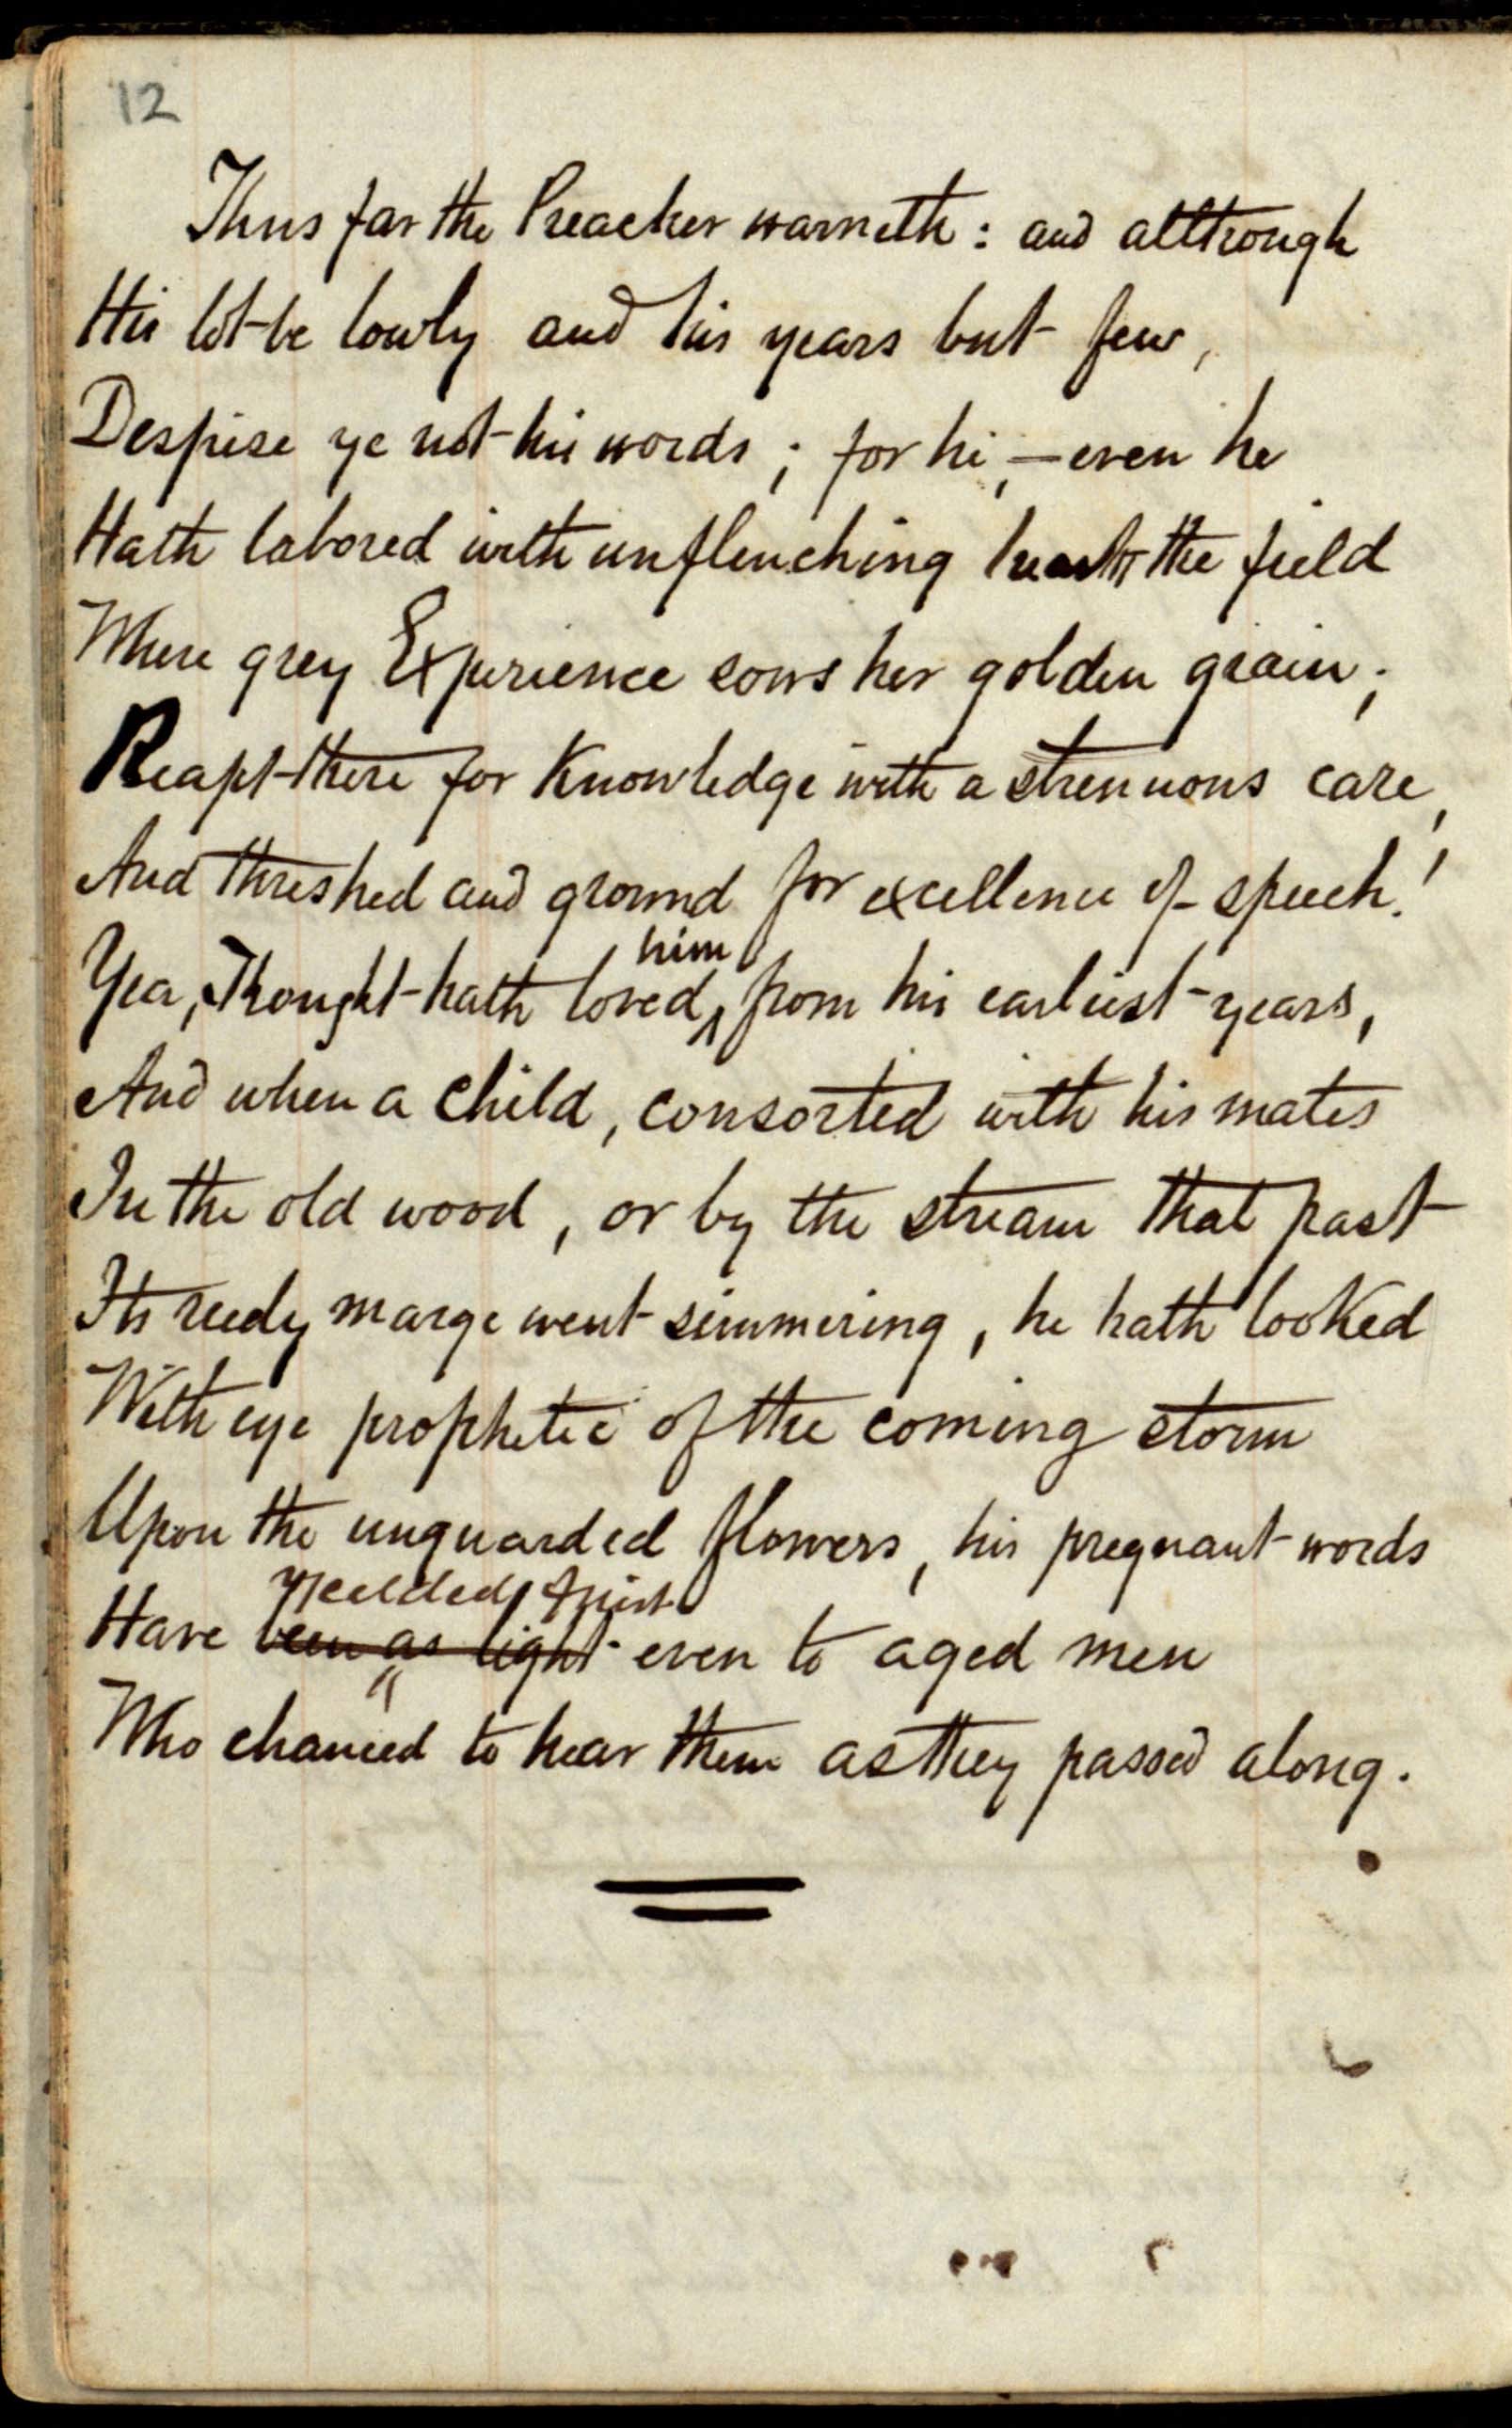 12
Thus far the Preacher warneth: and although
His lot be lowly and his years but few,
Despise ye not his words; for he,—even he
Hath labored with unflinching heart the field
Where grey Experience sows her golden grain;
Reapt there for Knowledge with a strenuous care,
And threshed and ground for excellence of speech!
him
Yea, Thought hath loved, from his earliest years,
And when a child, consorted with his mates
In the old wood, or by the stream that past
Its reedy marge went simmering, he hath looked
With eye prophetic of the coming storm
Upon the unguarded flowers, his pregnant words
yielded fruit
Have been as light even to aged men
Who chanced to hear them as they passed along.